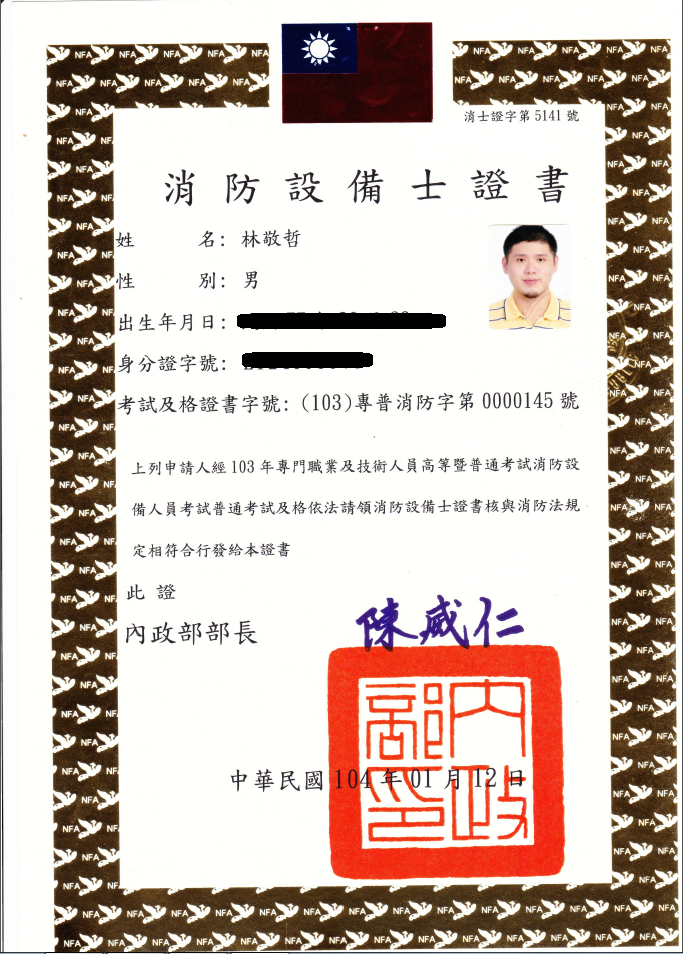 消士證字第5141號
消防設備士證書
姓 名: 林敬哲
性 別: 男
出生年月日:
身分證字號:
考試及格證書字號: (103)專普消防字第0000145號
上列申請人經103年專門職業及技術人員高等暨普通考試消防設
備人員考試普通考試及格依法請領消防設備士證書核與消防法規
定相符合行發給本證書
此 證
內政部部長 陳威仁
內政部印
中華民國104年01月12日
NFA